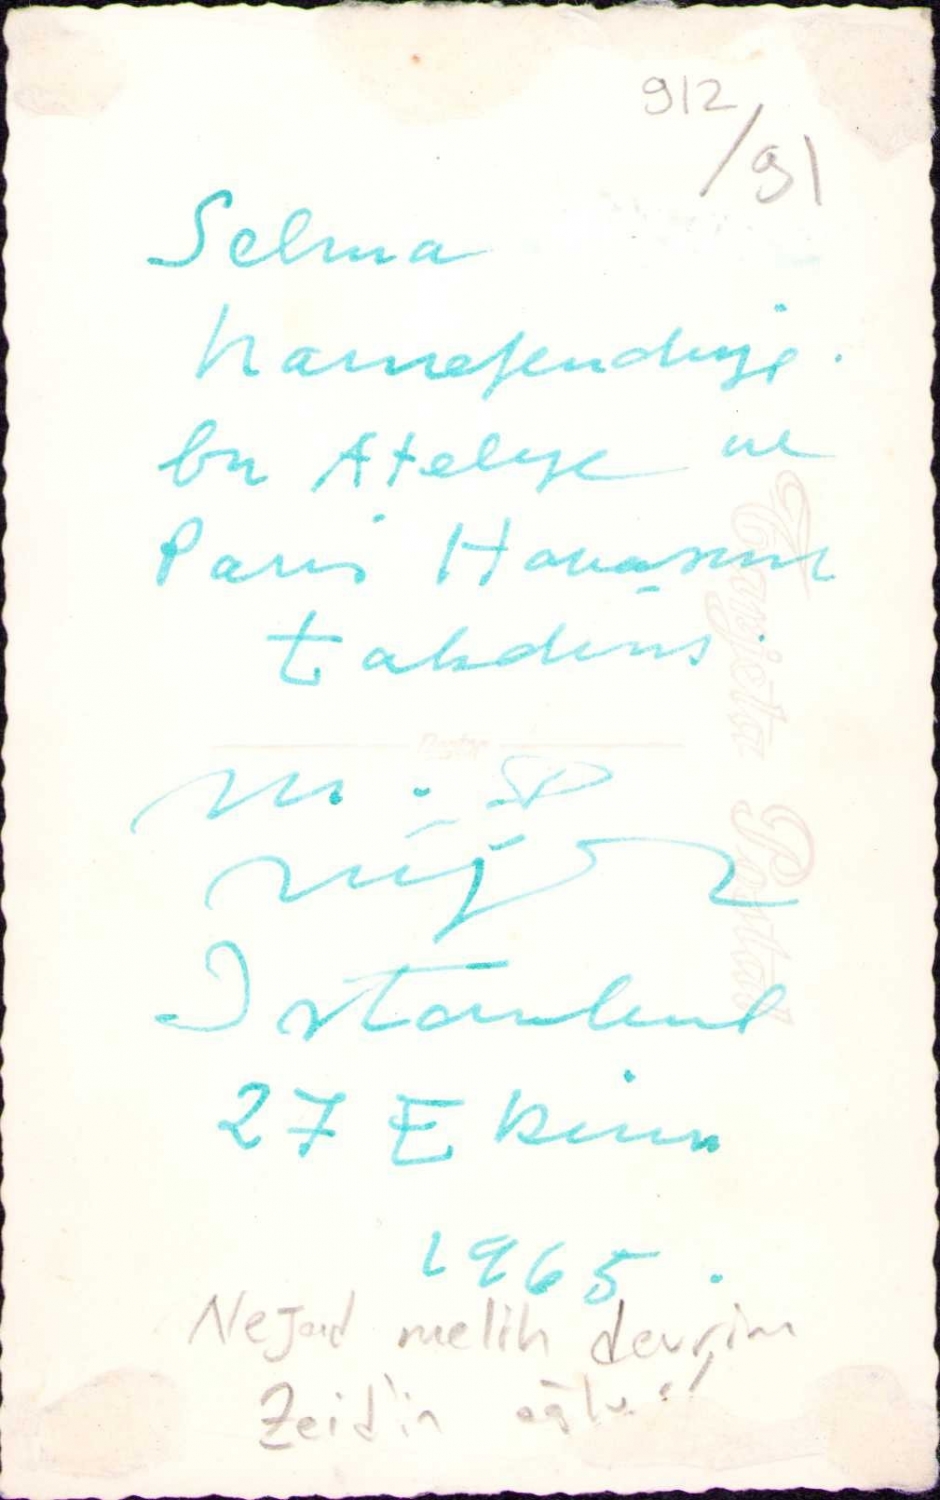 912
/91
Selma
hanıefendiye.
bu Atelye ve
Paris Havasını
takdims
M. D
Istanbul
27 Ekim
1965.
Nejad melih devrim
Zeid'in oğlu